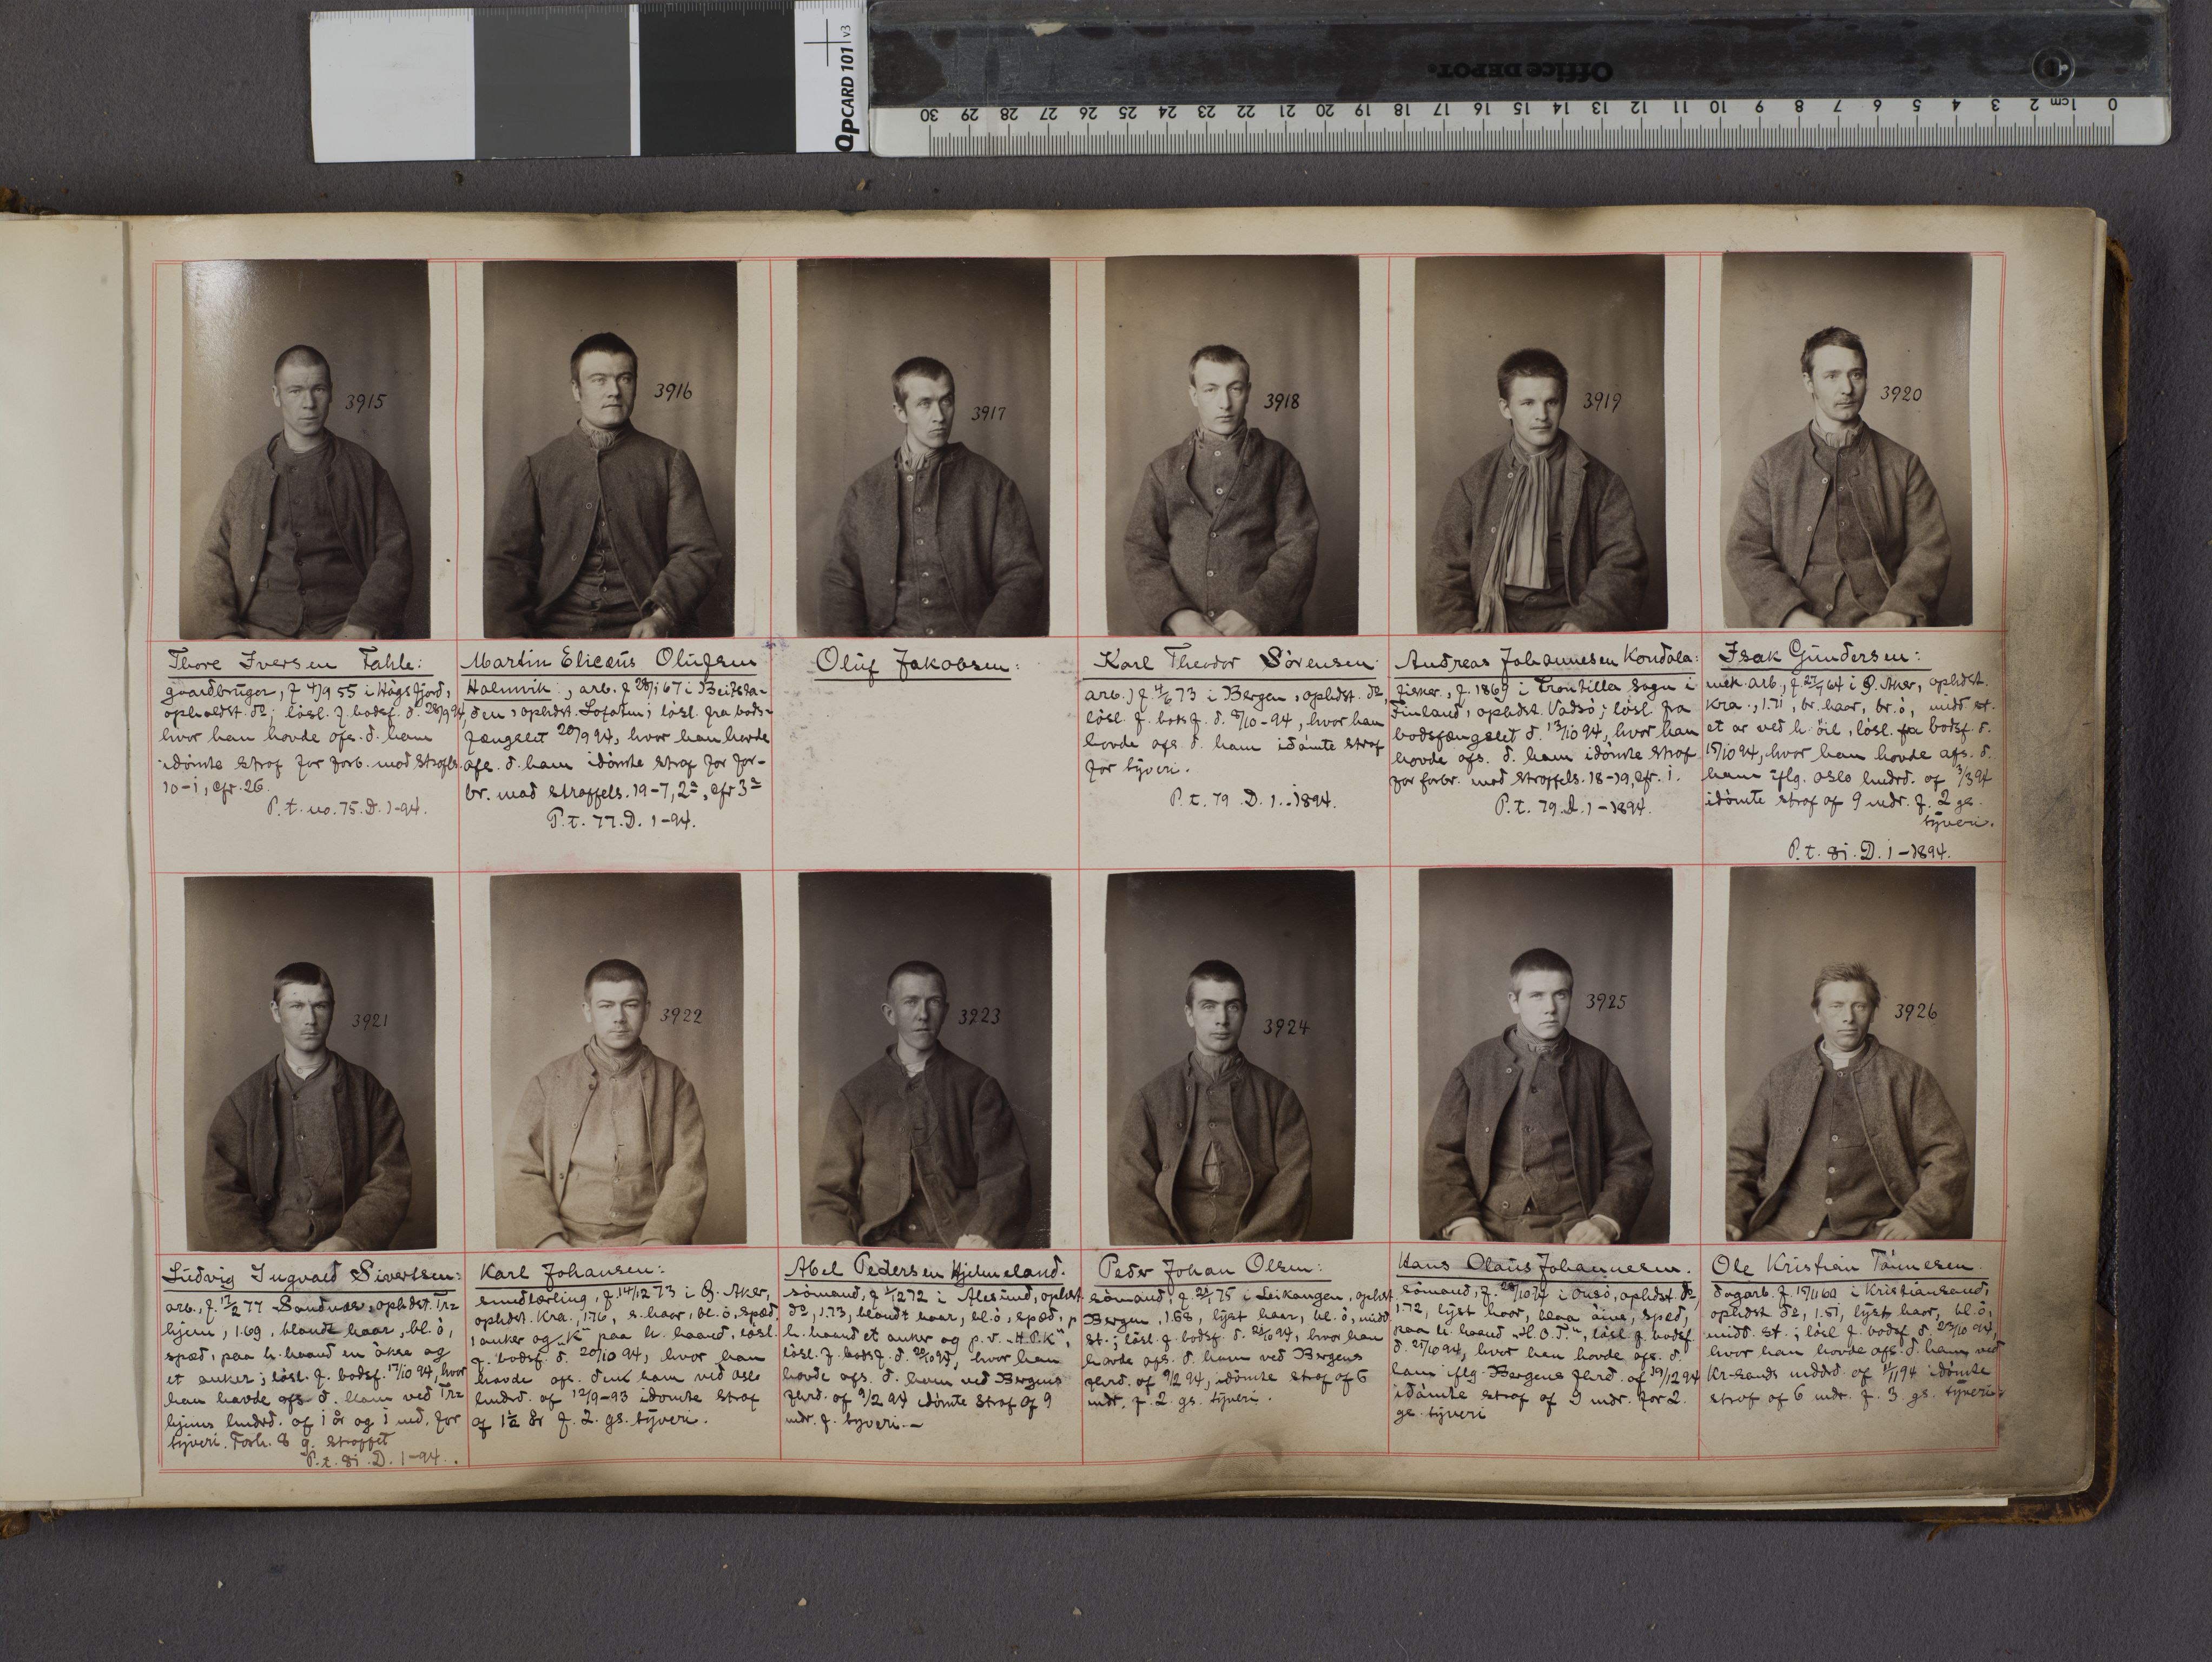 QPCARD 101 v3
Office DEPOT.
0 1cm 2 3 4 5 6 7 8 9 10 11 12 13 14 15 16 17 18 19 20 21 22 23 24 25 26 27 28 29 30
3915
3916
3917
3918
3919
3920
Thore Iversen Tahle:
gaardbruger, f 4/9 55 i Högsfjord,
opholdst. do; lösl. f. bodsf. d. 28/9 94,
hvor han havde afs. d. ham
idömte straf for forb. mod straffels.
10-1, cfr. 26.
P. t. no. 75. D. 1-94.
Martin Eliceus Olufsen
Holmvik:, arb. f 28/1 67 i Beitsta-
den, ophdst. Lofoten; lösl. fra bods-
fængslet 20/9 94, hvor han havde
afs. d. ham idömte straf for for-
br. mod straffels. 19-7, 2, cfr 3
P. t. 77. D. 1-94.
Oluf Jakobsen:
Karl Theodor Sörensen:
arb., f 4/6 73 i Bergen, ophdst. do,
lösl. f. bodsf. d. 8/10-94, hvor han
havde afs. d. ham idömte straf
for tyveri.
P. t. 79. D. 1-1894.
Andreas Johannesen Kondola:
fisker, f. 1869 i Trontilla sogn i
Finland, ophdst. Vadsö; lösl. fra
bodsfængslet d. 13/10 94, hvor han
havde afs. d. ham idömte straf
for forbr. mod straffels. 18-19, cfr. 1.
P. t. 79. D. 1-1894.
Isak Gundersen:
mek. arb., f. 27/7 64 i Ø. Aker, ophdst.
Kra., 1.71, br. haar, br. ö, midd st.
et ar ved h. öie, lösl. fra bodsf. d.
15/10 94, hvor han havde afs. d.
ham iflg. Oslo mdrd. af 3/3 94
idömte straf af 9 mdr. f. 2 gs.
tyveri.
P. t. 81. D. 1-1894.
3921
3922
3923
3924
3925
3926
Ludvig Ingvald Sivertsen:
arb., f. 12/2 77 Sandnæs, ophdst. Tr:
hjem, 1.69, blandt haar, bl. ö,
spæd, paa h. haand en økse og
et anker; lösl. f. bodsf. 17/10 94, hvor
han havde afs. d. ham ved Tr:
hjems mdrd. af 1 år og 1 md. for
tyveri. Forh. 8 g. straffet
P. t. 81. D. 1-94.
Karl Johansen:
smedlærling, f. 14/12 73 i Ø. Aker,
ophdst. Kra., 1.70, s. haar, bl. ö, spæd,
1 anker og "K" paa h. haand, lösl.
f. bodsf. d. 20/10 94, hvor han
havde afs. den ham ved Oslo
mdrd. af 12/9-93 idömte straf
af 1½ år f. 2. gs. tyveri.
Abel Pedersen Hjelmeland.
sömand, f 5/12 72 i Alesund, ophdst
do, 1.73, blandt haar, bl. ö, spæd, p
h. haand et anker og p. v. "H.P.K",
lösl. f. bodsf. d. 20/10 94, hvor han
havde afs. d. ham ved Bergens
fhrd. af 9/2 94 idömte straf af 9
mdr. f. tyveri.-
Peder Johan Olsen:
sömand, f. 23/1 75 i Leikangen, ophdst.
Bergen, 1.68, lyst haar, bl. ö, midd
st.; lösl. f. bodsf. d. 22/10 94, hvor han
havde afs. d. ham ved Bergens
fhrd. af 9/2 94, idömte straf af 6
mdr. f. 2 gs. tyveri.
Hans Olaus Johannesen.
sömand, f. 29/10 74 i Onsö, ophdst. do,
1.72, lyst haar, blaa öine, spæd,
paa h. haand "H. O. J.", lösl. f. bodsf
d. 25/10 94, hvor han havde afs. d.
ham iflg. Bergens fhrd. af 19/12 94
idömte straf af 9 mdr. for 2.
gs. tyveri
Ole Kristian Tönnesen.
dagarb. f. 15/11 60 i Kristiansand,
ophdst do, 1.51, lyst haar, bl. ö,
midd. st.; lösl f. bodsf. d. 23/10 94,
hvor han havde afs. d. ham ved
Kr-sands mddrd. af 11/1 94 idömte
straf af 6 mdr. f. 3. gs. tyveri.